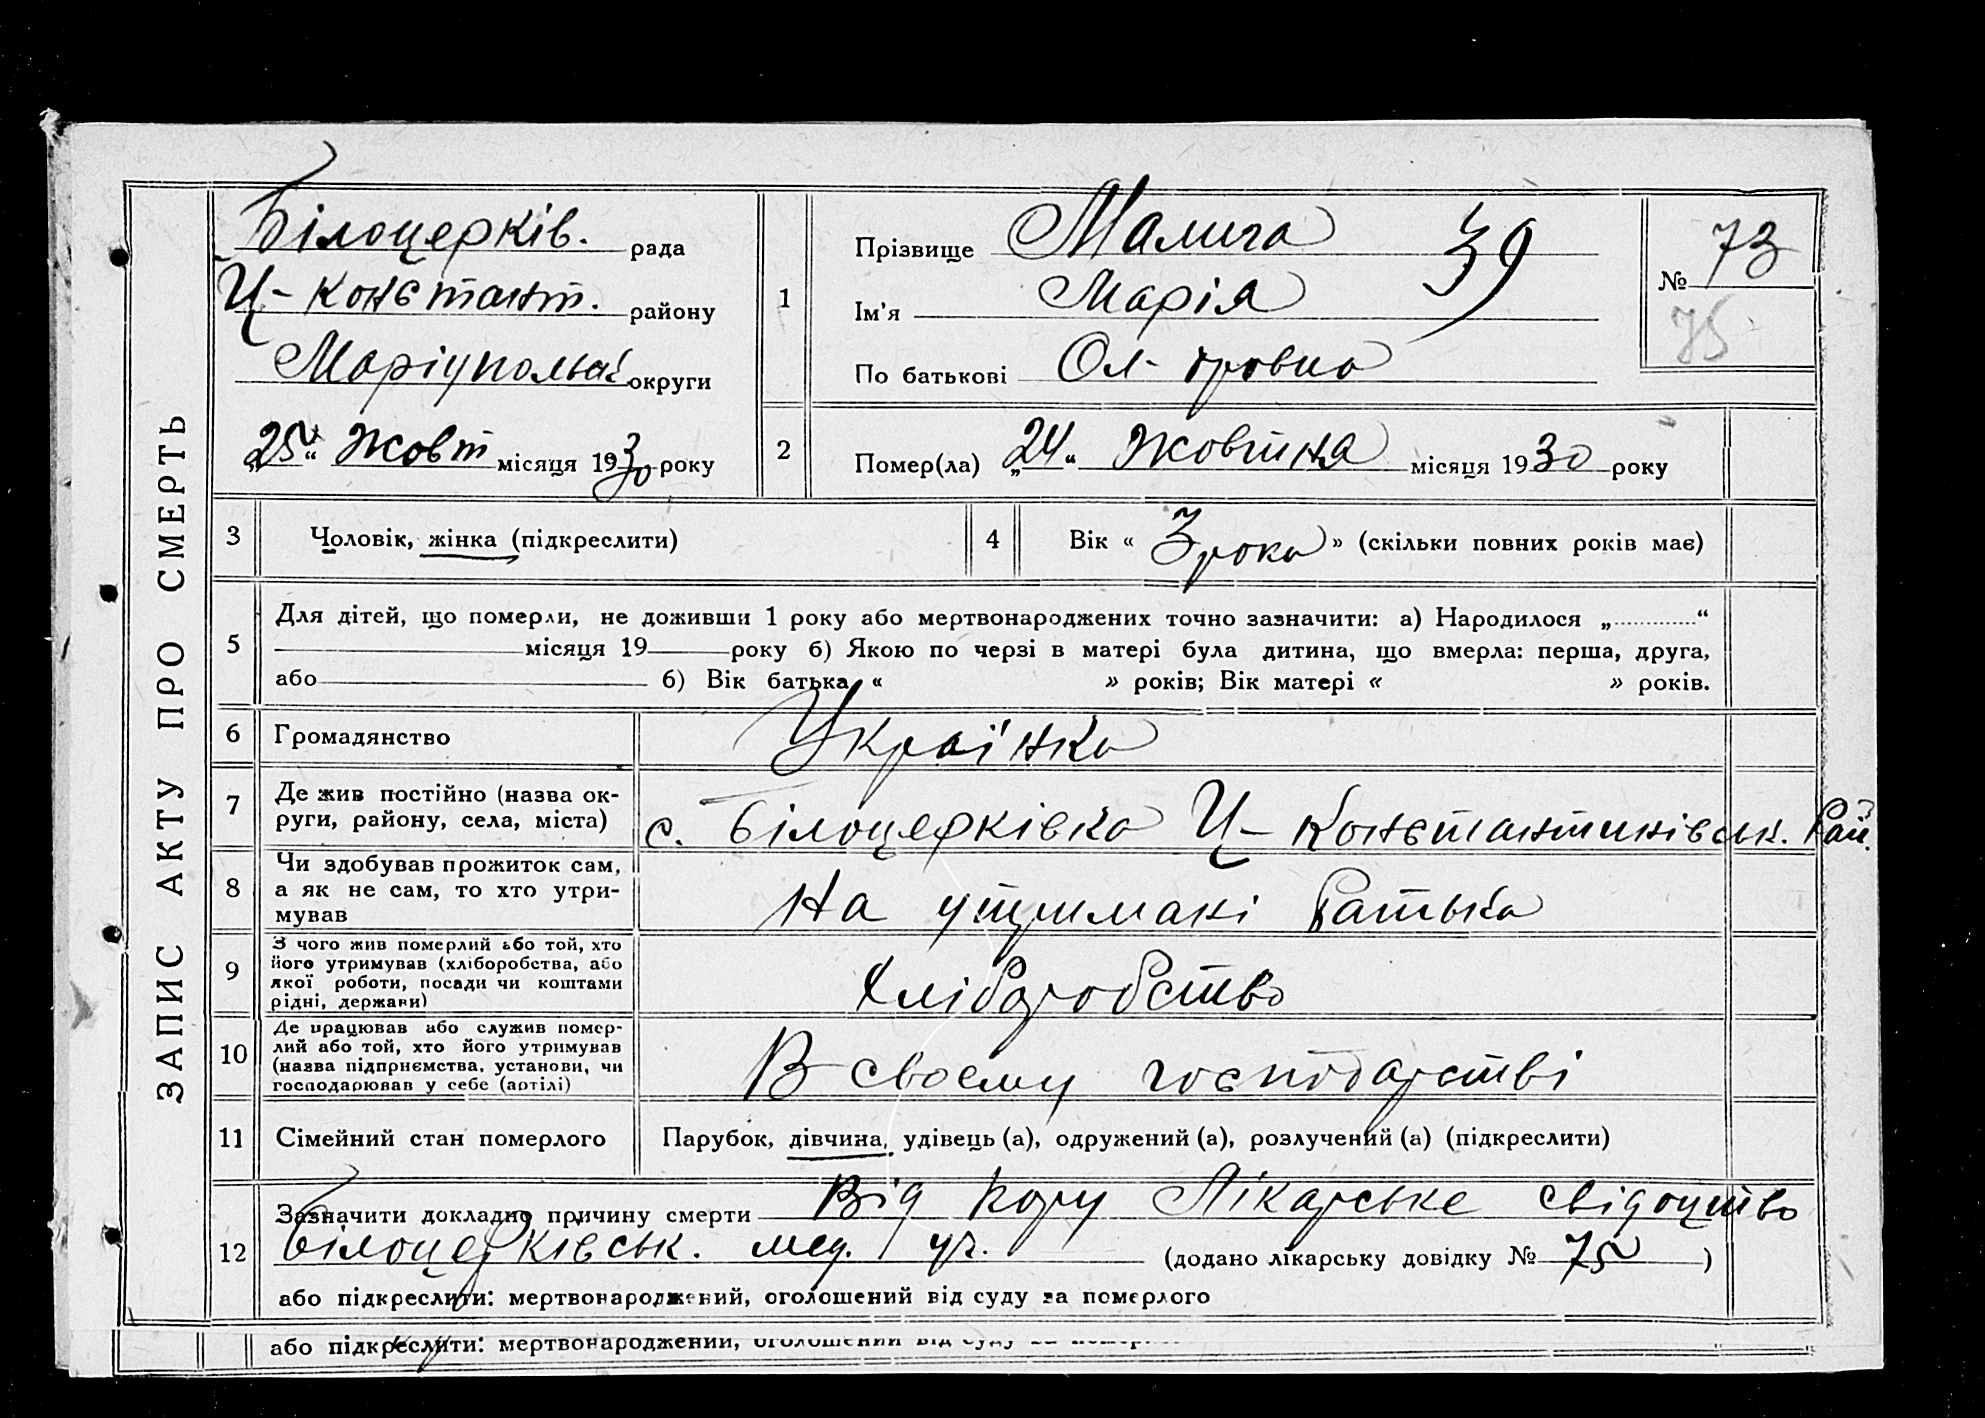 ЗАПИС АКТУ ПРО СМЕРТЬ
Білоцерків. рада
Ц-Констант. району
Маріупольс округи
„25“ Жовт місяця 1930 року
1
Прізвище Малига 39
Ім'я Марія
По батькові Ол-ровна
№ 73
75
2
Помер(ла) „24“ Жовтня місяця 1930 року
3 Чоловік, жінка (підкреслити)
4 Вік « 3 рока » (скільки повних років має)
5
Для дітей, що померли, не доживши 1 року або мертвонароджених точно зазначити: а) Народилося „ “
місяця 19 року б) Якою по черзі в матері була дитина, що вмерла: перша, друга,
або б) Вік батька « » років; Вік матері « » років.
6 Громадянство Українка
7 Де жив постійно (назва ок-
руги, району, села, міста) с. Білоцерківка Ц-Константинівськ. Рай.
8 Чи здобував прожиток сам,
а як не сам, то хто утри-
мував На утримані батька
9 З чого жив померлий або той, хто
його утримував (хліборобства, або
якої роботи, посади чи коштами
рідні, держави) Хліборобство
10 Де працював або служив помер-
лий або той, хто його утримував
(назва підприємства, установи, чи
господарював у себе (артілі) В своему господарстві
11 Сімейний стан померлого Парубок, дівчина, удівець (а), одружений (а), розлучений (а) (підкреслити)
12 Зазначити докладно причину смерти Від кору Лікарське свідоцтво
Білоцерківськ. мед. уч. (додано лікарську довідку № 75 )
або підкреслити: мертвонароджений, оголошений від суду за померлого
або підкреслити: мертвонароджений, оголошений від суду за